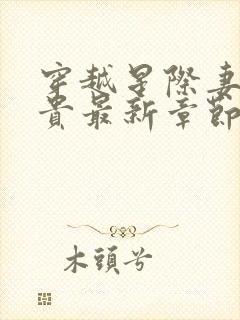 穿越星際妻
貴最新章節
木頭兮